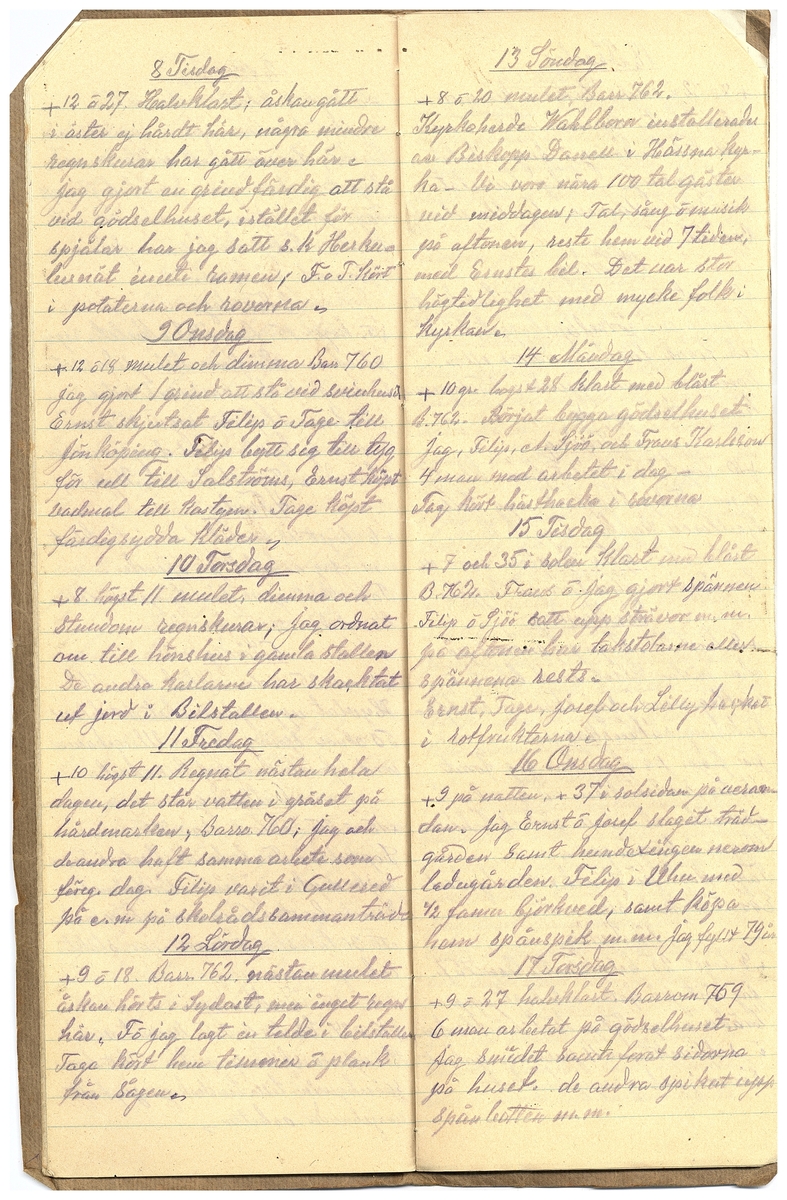 8 Tisdag
+12 ö 27 Halvklart; åskan gått
i öster ej hårdt här, några mindre
regnskurar har gått över här.
Jag gjort en grind färdig att stå
vid gödselhuset, istället för
spjälar har jag satt s.k Herku-
lusnät inuti ramen; F. o T. kört
i potaterna och rovorna.
9 Onsdag
+ 12 ö 18 mulet och dimma Barr 760
jag gjort 1 grind att stå vid svinhuset
Ernst skjutsat Filip ö Tage till
Jönköping. Filip bytt sig till tyg
för ull till Salströms, Ernst köpt
vadmal till kostym. Tage köpt
färdigsydda kläder.
10 Torsdag
+8 högst 11 mulet, dimma och
stundom regnskurar; jag ordnat
om till hönshus i gamla stallen
De andra karlarne har skaktat
ut jord i Bilstallen.
11 Fredag
+10 högst 11. Regnat nästan hela
dagen, det står vatten i gräset på
hårdmarken, Barro 760; jag och
de andra haft samma arbete som
föreg. dag. Filip varit i Gullered
på e.m på skolrådssammanträde
12 Lördag
+9 ö 18 Barr. 762. nästan mulet
åskan hörts i Sydost, men inget regn
här. Fö jag lagt in i bilstallen
Tage kört hem timmer ö plank
från Sågen.
13 Söndag
+8 ö 20 mulet, Barr 762.
Kyrkoherde Wahlbom installerades
av Biskopp Danell i Hössna kyr-
ka - Vi voro nära 100 tal gäster
vid middagen; Tal, sång ö musik
på aftonen, reste hem vid 7 tiden,
med Ernstes bil. Det var stor
högtidlighet med mycke folk i
kyrkan.
14 Måndag
+ 10 gr lägs + 28 klart med blåst
B.762. Börjat bygga gödselhuset
jag, Filip, A. Sjöö, och Frans Karlsson
4 man med arbetet i dag -
Tag kört hästhacka i rovorna
15 Tisdag
+ 7 och 35 i solen klart med blåst
B.762. Frans ö Jag gjort spännen
Filip ö Sjöö satt upp strävor m.m.
på aftonen har takstolarne eller
spännena rests.
Ernst, Tage, Josef och Lilly hackat
i rotfrukterna.
16 Onsdag
+9 på natten, +37 i solsidan på veran-
dan. Jag Ernst ö Josef slaget träd-
gården samt nerom
ladugården. Filip i Uhu med
1/2 famn björkved, samt köpa
hem spånspik m.m. Jag fyllt 79 år
17 Torsdag
+9 = 27 halvklart. Barrom 759
6 man arbetat på gödselhuset
Jag smidet samt forat sidorna
på huset. de andra spikat upp
spånbotten m.m.